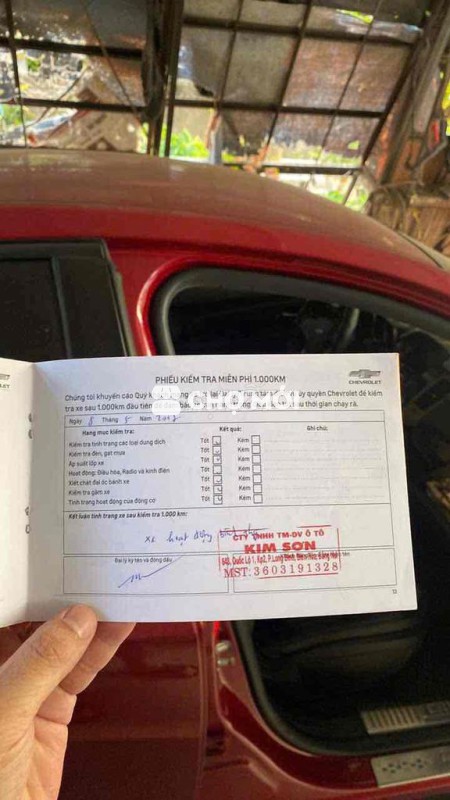 PHIẾU KIỂM TRA MIỄN PHÍ 1.000KM
CHEVROLET
Chúng tôi khuyến cáo Quý
quyền Chevrolet để kiểm
tra xe sau 1.000km đầu tiên
sau thời gian chạy rà.
Chợ Tốt
Ngày 8 Tháng 8 Năm
Hạng mục kiểm tra: Kết quả: Ghi chú:
Kiểm tra tình trạng các loại dung dịch Tốt Kém
Kiểm tra đèn, gạt mưa Tốt Kém
Áp suất lốp xe Tốt Kém
Hoạt động: Điều hòa, Radio và kính điện Tốt Kém
Xiết chặt đai ốc bánh xe Tốt Kém
Kiểm tra gầm xe Tốt Kém
Tình trạng hoạt động của động cơ Tốt Kém
Kết luận tình trạng xe sau kiểm tra 1.000 km:
Xe hoạt động
CTY TNHH TM-DV Ô TÔ
KIM SƠN
Đại lý ký tên và đóng dấu
MST: 3603191328
12